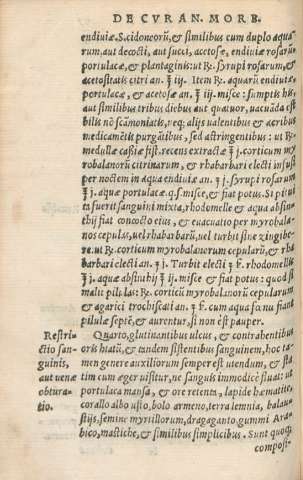 DE CVRAN. MORB.
endiuiæ. S. cidoneorũ, & similibus cum duplo aqua
rum, aut decocti, aut succi, acetosæ, endiuiæ rosarũ
portulacæ, & plantaginis: ut ℞. syrupi rosarum, &
acetositatis citri an. ℥ iij. Item ℞. aquarũ endiuiæ
portulacæ, & acetosæ an. ℥ iij. misce: sumptis his,
aut similibus tribus diebus aut quatuor, uacuãda est
bilis nõ scãmoniatis, neq; alijs ualentibus & acribus
medicamẽtis purgãtibus, sed astringentibus: ut ℞.
medullæ caßiæ fist. recens extractæ ℥ j. corticum my
robalanorũ citrinarum, & rhabarbari electi infusi
per noctem in aqua endiuiæ an. ʒ j. syrupi rosarum
℥ j. aquæ portulacæ q. s. misce, & fiat potus. Si pitui
ta fuerit sanguini mixta, rhodomelle & aqua absin
thij fiat concoctio eius, & euacuatio per myrobala-
nos cepulas, uel rhabarbarũ, uel turbit sine zingibe-
re: ut ℞. corticum myrobalanorum cepularũ, & rha
barbari electi an. ʒ j. Turbit electi ʒ ß. rhodomellis
℥ j. aquæ absinthij ℥ iij. misce & fiat potus: quod si
malit pilulas: ℞. corticũ myrobalanorũ cepularum
& agarici trochiscati an. ʒ ß. cum aqua formẽ fiant
pilulæ septẽ, & aurentur, si non est pauper.
Restri/ Quarto, glutinantibus ulcus, & contrahentibus
ctio san- oris hiatũ, & tandem sistentibus sanguinem, hoc ta-
guinis, men genere auxiliorum semper est utendum, & sta
aut uenæ tim cum æger uisitur, ne sanguis immodicè fluat: ut
obtura- portulaca mansa, & ore retenta, lapide hæmatite,
tio. corallo albo usto, bolo armeno, terra lemnia, balau-
stijs, semine myrtillorum, draganto gummi Ara-
bico, mastiche, & similibus simplicibus. Sunt quoq;
composi-